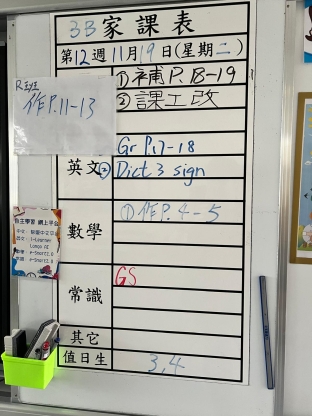 3B家課表
第12週11月19日(星期二)
①補P.18-19
②課工改
R班
作P.11-13
英文
Gr P.17-18
②Dict 3 sign
數學
①作P.4-5
常識
GS
其它
值日生
3,4
自主學習 網上平台